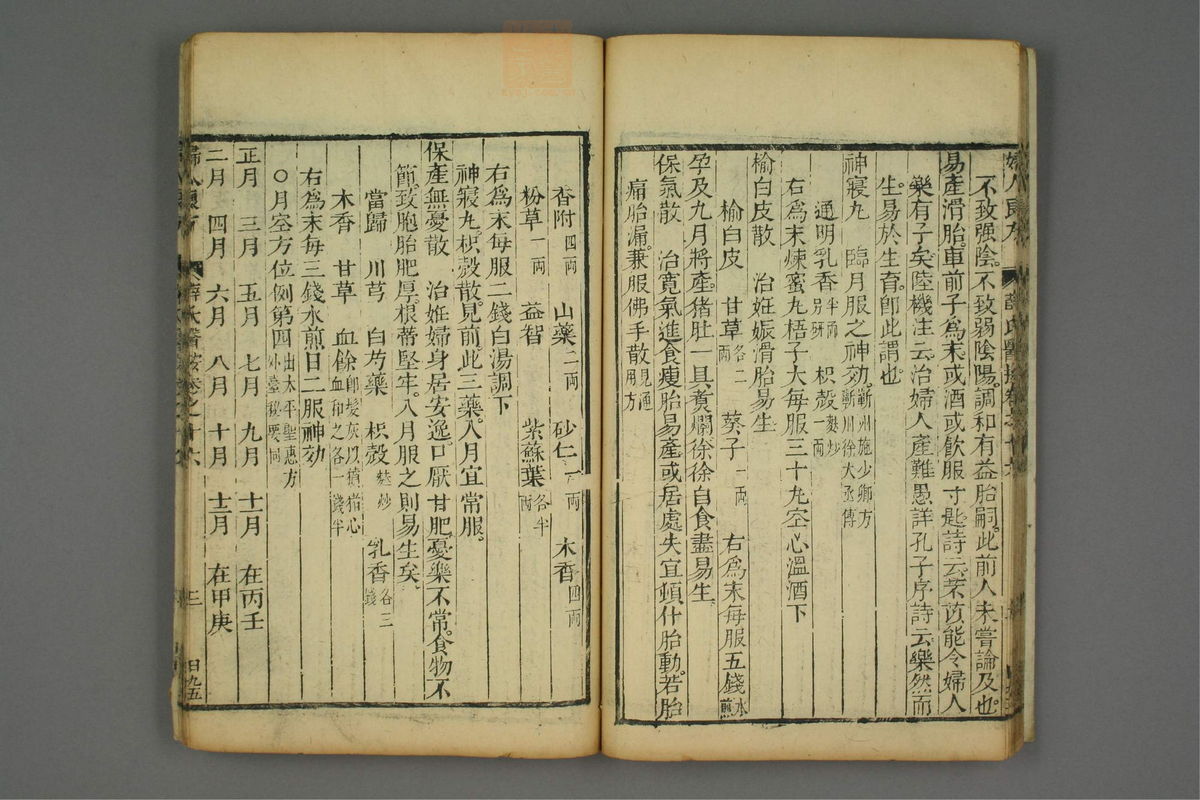 婦人良方 薛氏醫按卷之十六
不致强陰。不致弱陰陽。調和有益胎嗣。此前人未嘗論及也。
易產滑胎。車前子爲末或酒或飲服寸匙詩云芣苡能令婦人
樂有子矣。陸機注云治婦人產難愚詳孔子序詩云樂然而
生。易於生育。卽此謂也
神寢丸 臨月服之神効。蘄州施少卿方蘄州徐大丞傳
通明乳香半兩另研 枳殻麩炒一兩
右爲末煉蜜丸梧子大每服三十丸空心溫酒下
榆白皮散 治妊娠滑胎易生
榆白皮 甘草各二兩 葵子一兩 右爲末每服五錢水煎
孕及九月將產。猪肚一具煑爛徐徐自食盡易生
保氣散 治寛氣進食瘦胎易產或居處失宜頓仆胎動。若胎
痛胎漏。兼服佛手散見通用方
香附四兩 山藥二兩 砂仁一兩 木香四兩
粉草一兩 益智 紫蘇葉各半兩
右爲末每服二錢白湯調下
神寢丸。枳殻散。見前。此三藥。入月宜常服。
保產無憂散 治妊婦身居安逸。口厭甘肥。憂樂不常。食物不
節致胞胎肥厚。根蒂堅牢。八月服之則易生矣
當歸 川芎 白芍藥 枳殻麩炒 乳香各三錢
木香 甘草 血餘卽髮灰以豶猪心血和之各一錢半
右爲末每三錢水煎日二服神効
○月空方位例第四出太平聖惠方外臺秘要同
正月 三月 五月 七月 九月 十一月 在丙壬
二月 四月 六月 八月 十月 十二月 在甲庚
三
日九五